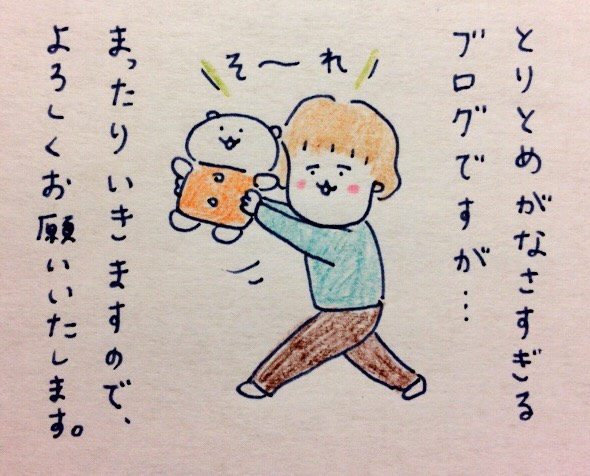 とりとめがなさすぎる
ブログですが…
そ～れ
まったりいきますので、
よろしくお願いいたします。